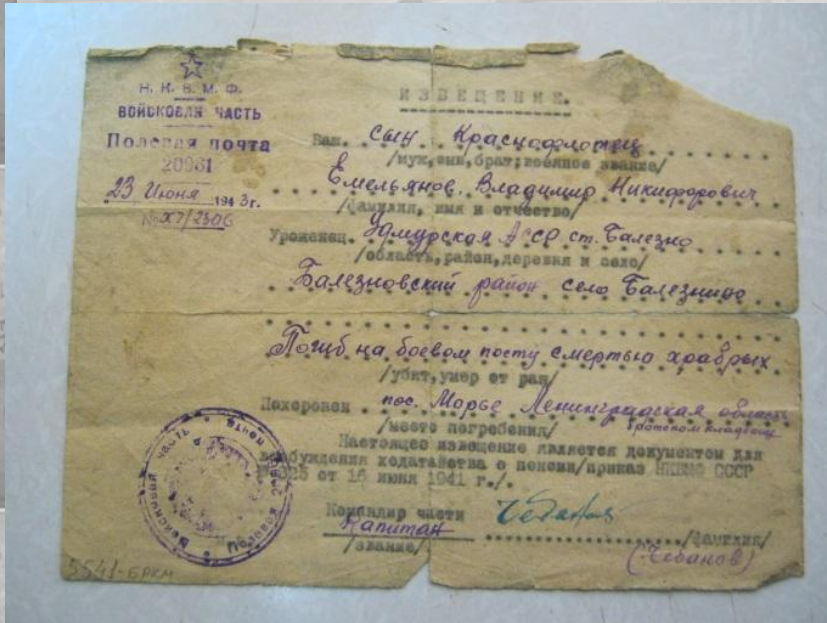 Н. К. В. М. Ф.
ВОЙСКОВАЯ ЧАСТЬ
Полевая почта
20961
23 Июня 1943г.
№ХУ/2306
ИЗВЕЩЕНИЕ.
Ваш. сын Краснофлотец
/муж,сын,брат;военное звание/
Емельянов. Владимир Никифорович
/фамилия, имя и отчество/
Уроженец. Удмурская Асср ст. Балезно
/область,район,деревня и село/
Балезновский район село Балезнино
Погиб на боевом посту смертью храбрых
/убит,умер от ран/
Похоронен пос. Морье Ленинградская область
/место погребения/ братском кладбище
Настоящее извещение является документом для
возбуждения ходатайства о пенсии/приказ НКВМФ СССР
от 16 июня 1941 г./.
Командир части
Капитан
/звание/ /фамилия/
(Чебанов)
Войсковая часть Полевая почта
5541-БРКМ